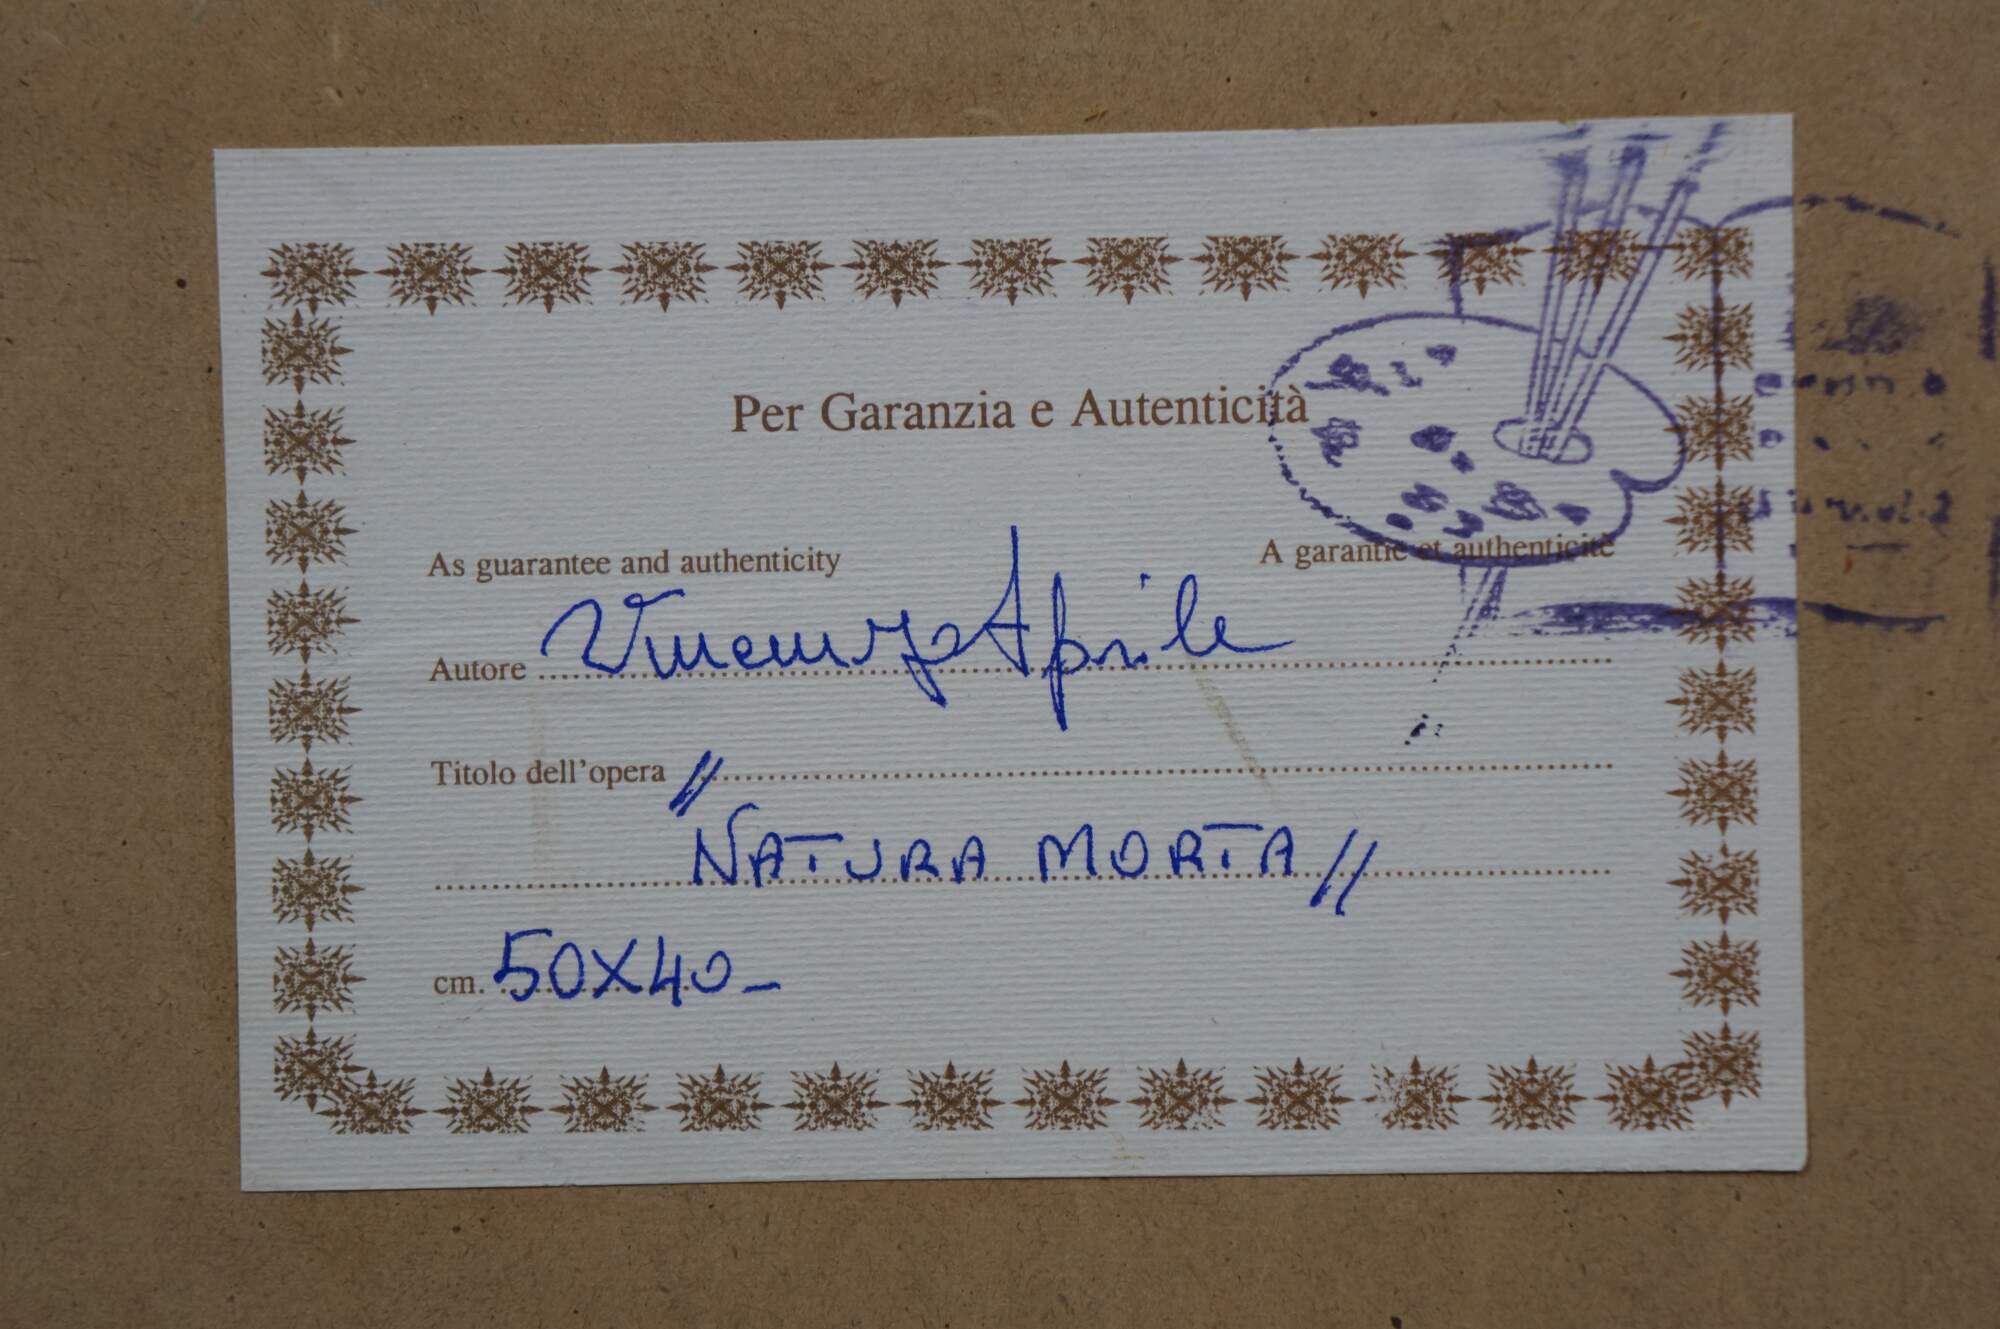 Per Garanzia e Autenticità
As guarantee and authenticity
A garantie et authenticité
Autore Vincenzo Aprile
Titolo dell'opera "
NATURA MORTA"
cm. 50X40-